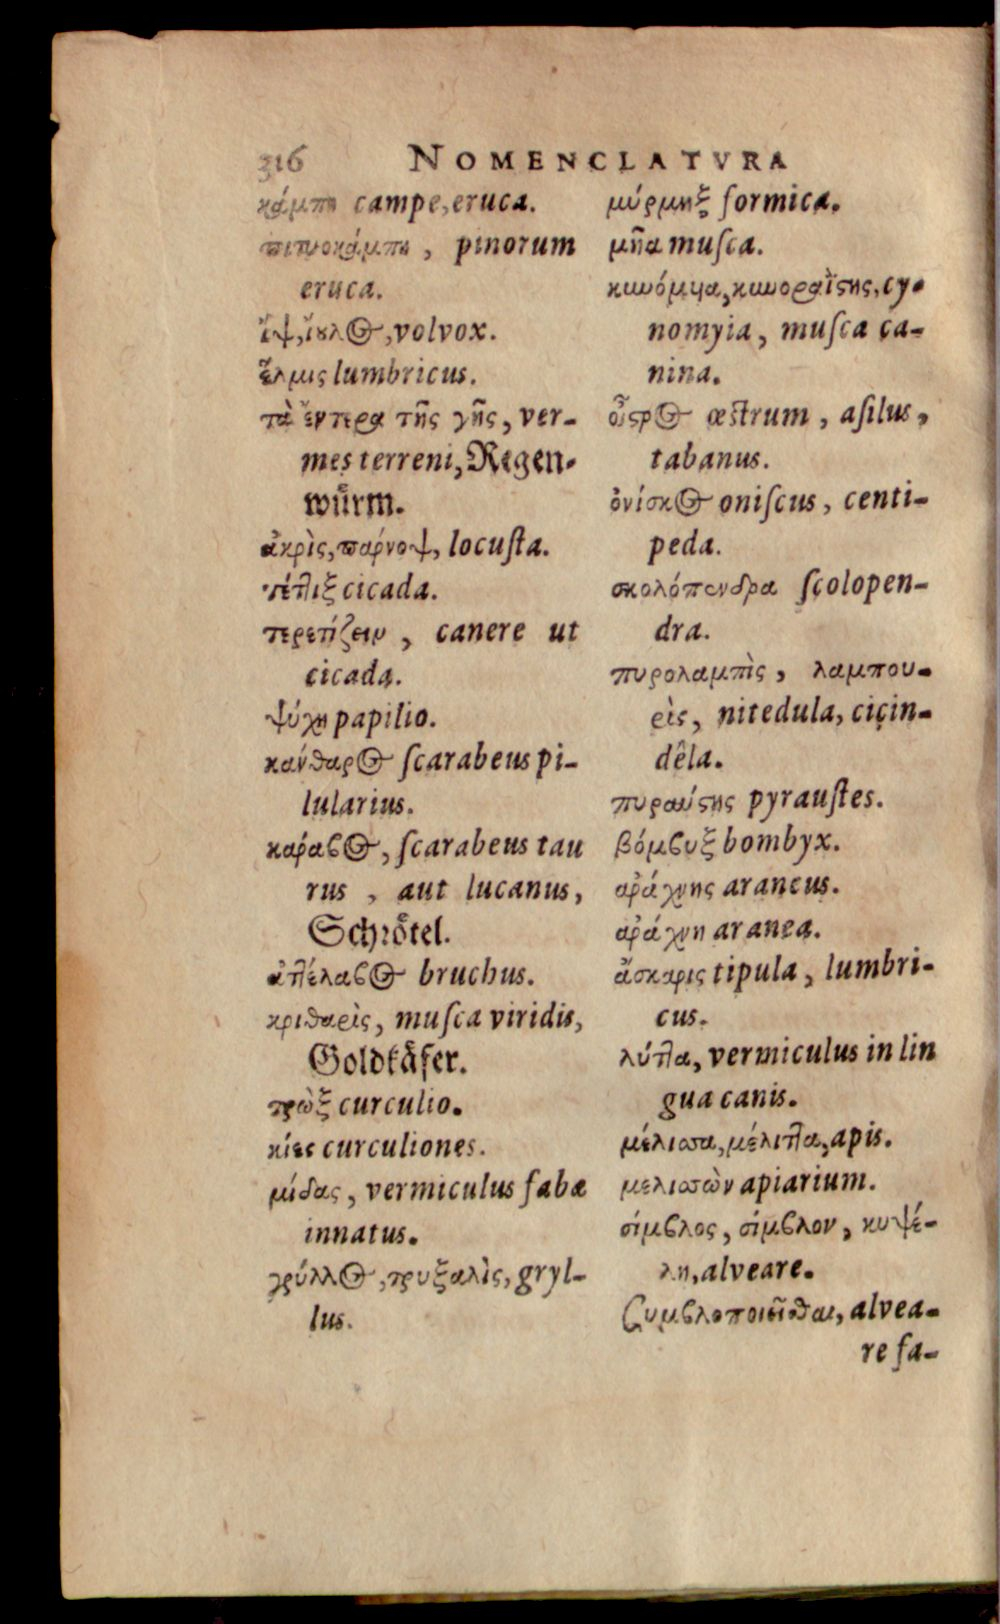 316 NOMENCLATVRA
κάμπη campe, eruca.
πιτυοκάμπη, pinorum
eruca.
ἲψ, ἴουλος, volvox.
ἕλμις lumbricus.
τὰ ἔντερα τῆς γῆς, ver-
mes terreni, Regen-
wuͤrm.
ἀκρὶς, πάρνοψ, locuſta.
τέτλιξ cicada.
τερετίζειν, canere ut
cicada.
ψύχη papilio.
κάνθαρος ſcarabeus pi-
lularius.
κάραβος, ſcarabeus tau
rus, aut lucanus,
Schroͤtel.
ἀττέλαβος bruchus.
κριθαρὶς, muſca viridis,
Goldkaͤfer.
τρὼξ curculio.
κίες curculiones.
μίδας, vermiculus fabæ
innatus.
γρύλλος, τρυξαλὶς, gryl-
lus.
μύρμηξ formica.
μῆα muſca.
κυνόμυα, κυνοραΐστης, cy-
nomyia, muſca ca-
nina.
οἶστρος œſtrum, aſilus,
tabanus.
ὀνίσκος oniſcus, centi-
peda.
σκολόπενδρα ſcolopen-
dra.
πυρολαμπὶς, λαμπου-
ρὶς, nitedula, cicin-
dêla.
πυραύστης pyrauſtes.
βόμβυξ bombyx.
ἀράχνης araneus.
ἀράχνη aranea.
ἄσκαρις tipula, lumbri-
cus.
λύττα, vermiculus in lin
gua canis.
μέλισσα, μέλιττα, apis.
μελισσὼν apiarium.
σίμβλος, σίμβλον, κυψέ-
λη, alveare.
ζυμβλοποιεῖσθαι, alvea-
re fa-